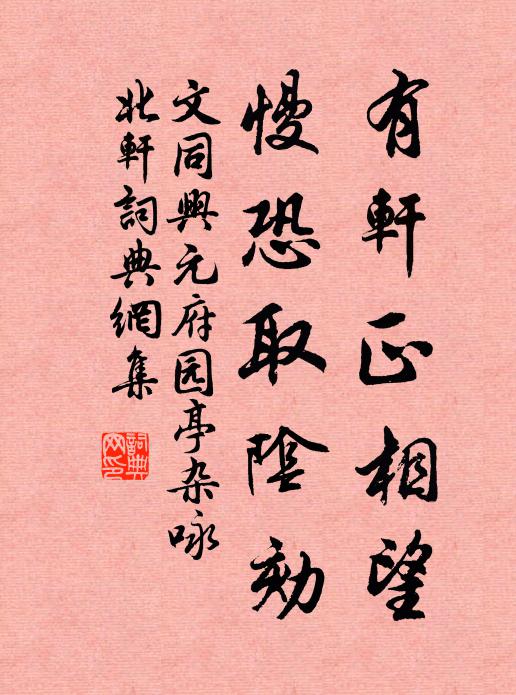 有軒正相望
慢恐取陰劾
文同興元府园亭杂咏
北軒詞典網集
詞典网印